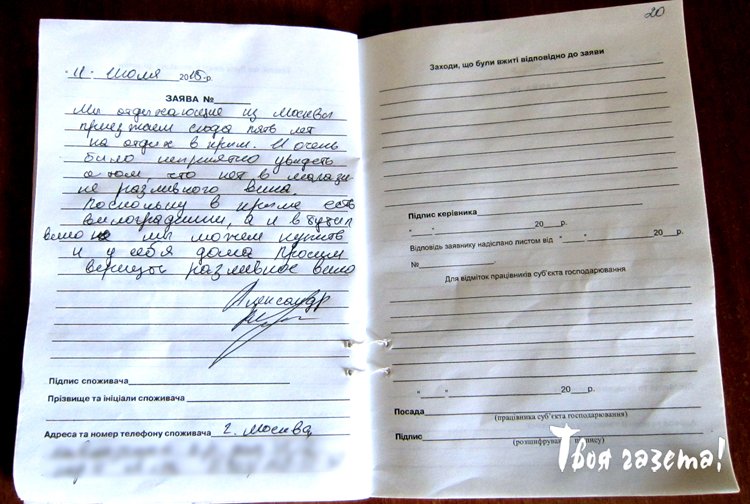 11 июля 2015 р.
ЗАЯВА №
Мы отдыхающие из Москвы
приезжаем сюда пять лет
на отдих в крим. И очень
било неприятно увидеть
о том, что нет в магази
не разливного вина.
Поскольку в криме есть
виноградники, а и в бутил
вино мы можем купить
и у себя дома Просим
вернуть разливное вино
Александр
Підпис споживача
Прізвище та ініціали споживача
Адреса та номер телефону споживача г. Москва
20
Заходи, що були вжиті відповідно до заяви
Підпис керівника
" " 20 р.
Відповідь заявнику надіслано листом від " " 20 р.
№
Для відміток працівників суб'єкта господарювання
" " 20 р.
Посада
(працівника суб'єкта господарювання)
Підпис
(розшифрування підпису)
Твоя газета!